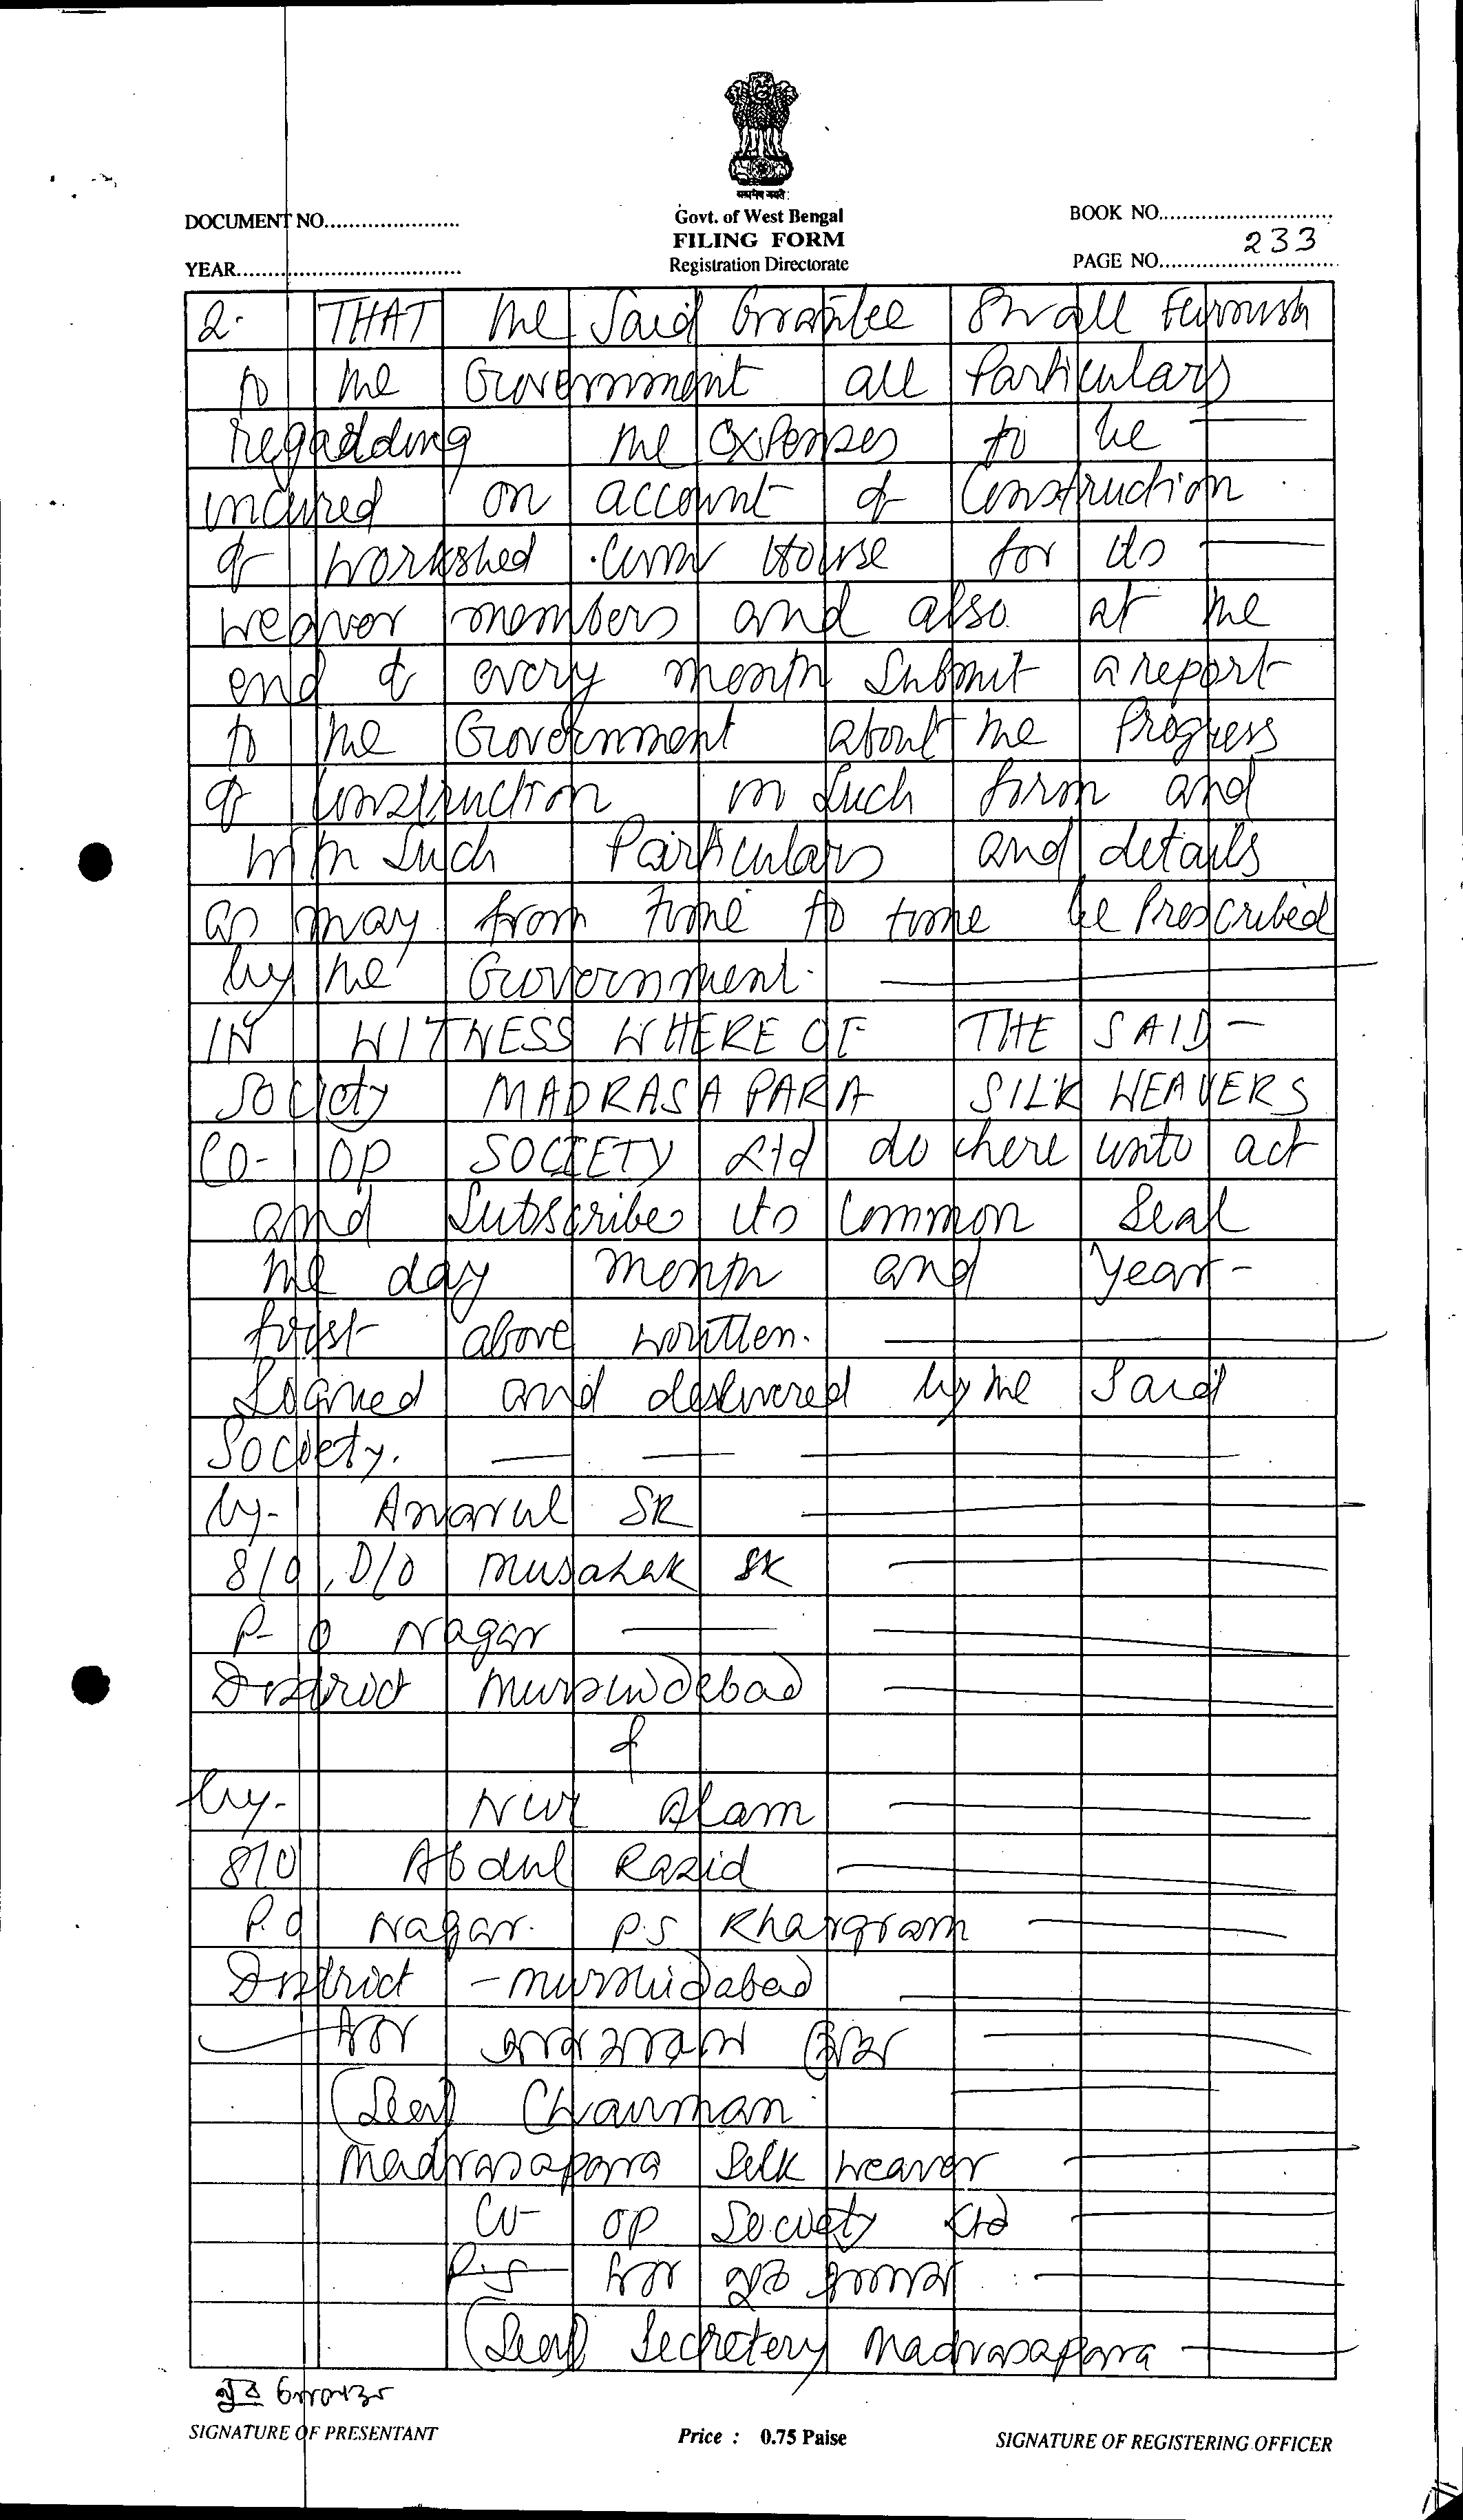 सत्यमेव जयते
Govt. of West Bengal
FILING FORM
Registration Directorate
DOCUMENT NO.....................
YEAR...................................
BOOK NO...........................
PAGE NO. 233
2. THAT the Said Grantee Shall Furnish
to the Government all Particulars
regadding the expenses to be
incured on account of Construction
of workshed cum House for its
weaver members and also at the
end of every month Submit a report
to the Government about the Progress
of Construction in Such form and
with Such Particulars and details
as may from time to time be Prescribed
by the Government.
IN WITNESS WHERE OF THE SAID
Society MADRASA PARA SILK WEAVERS
CO- OP SOCIETY Ltd do there unto act
and Subscribes its Common Seal
the day month and year
first above written.
Signed and delivered by the Said
Society.
by- Anarul SK
S/O, D/O Musahak SK
P- O Nagar
District Murshidabad
&
by- Nur Alam
S/O Abdul Rasid
P.O Nagar. P.S Khargram
District - Murshidabad
(Seal) Chairman
Madrasapara Silk weaver
Co- op Society Ltd
(Seal) Secretery Madrasapara
SIGNATURE OF PRESENTANT
Price : 0.75 Paise
SIGNATURE OF REGISTERING OFFICER